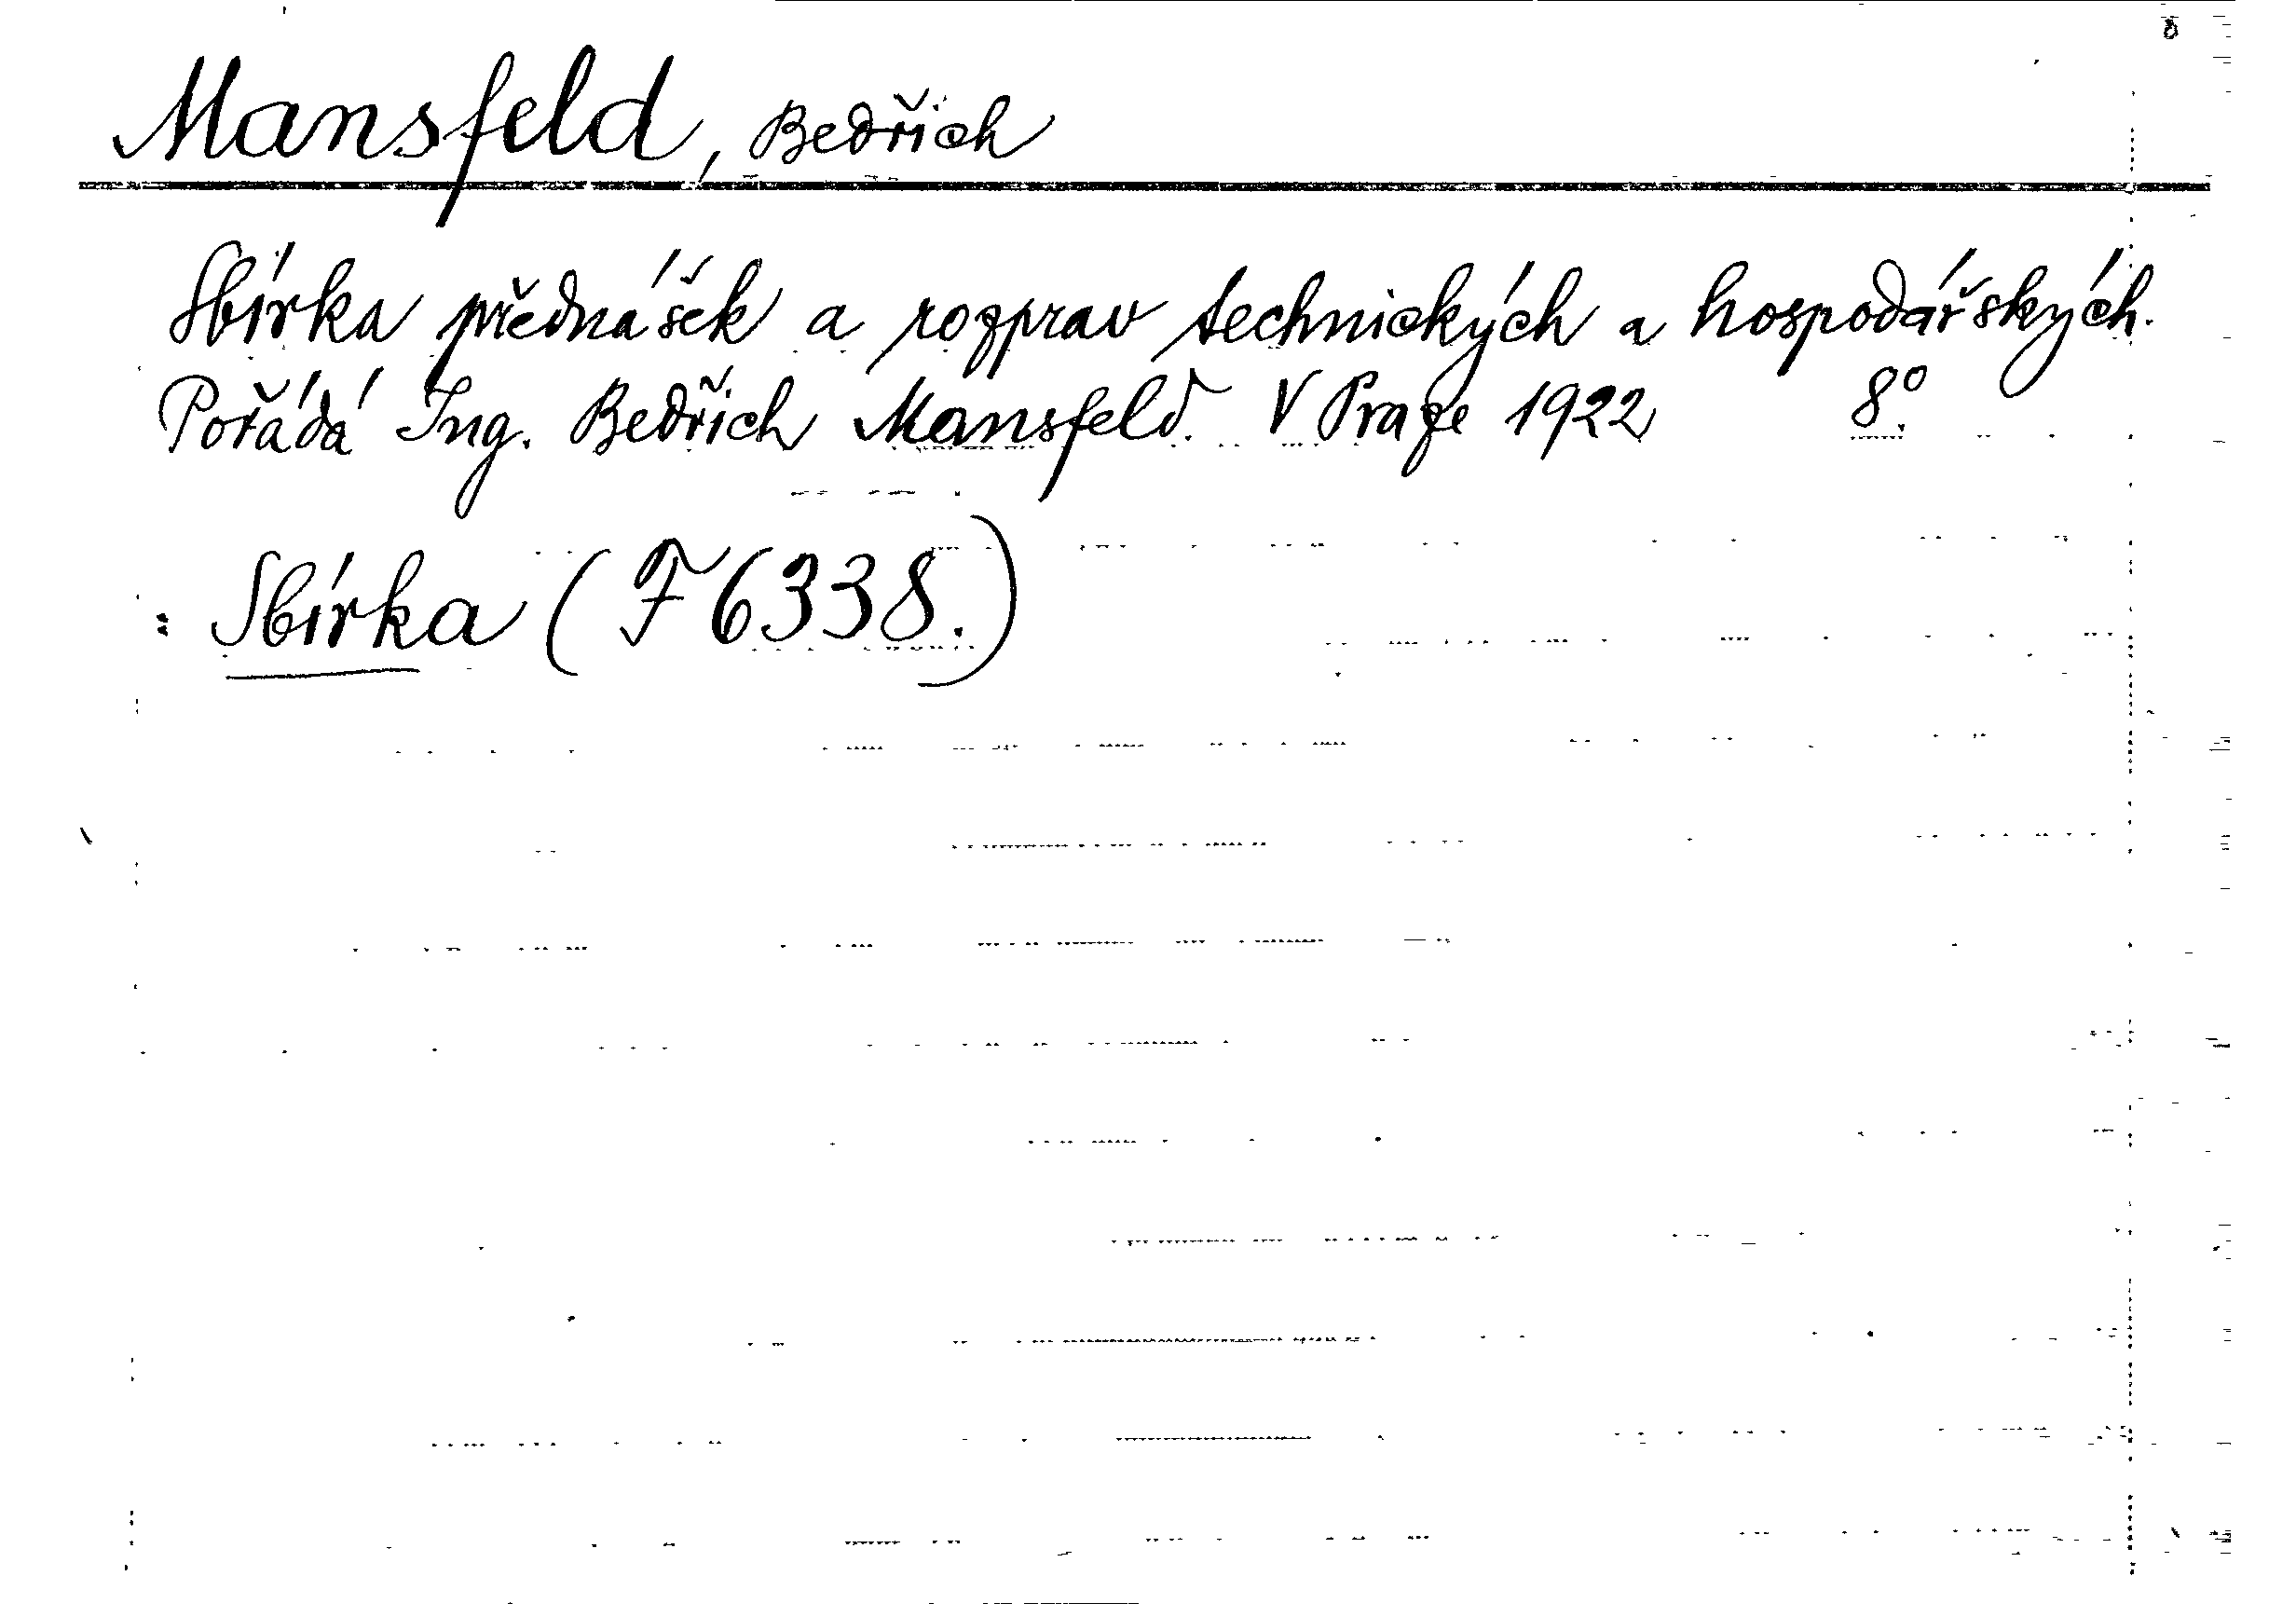 Mansfeld, Bedřich
Sbírka přednášek a rozprav technických a hospodářských.
Pořádá Ing. Bedřich Mansfeld. V Praze 1922 8°.
: Sbírka (F 6338.)